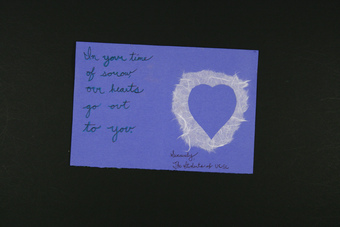 In your time
of sorrow
our hearts
go out
to you
Sincerely